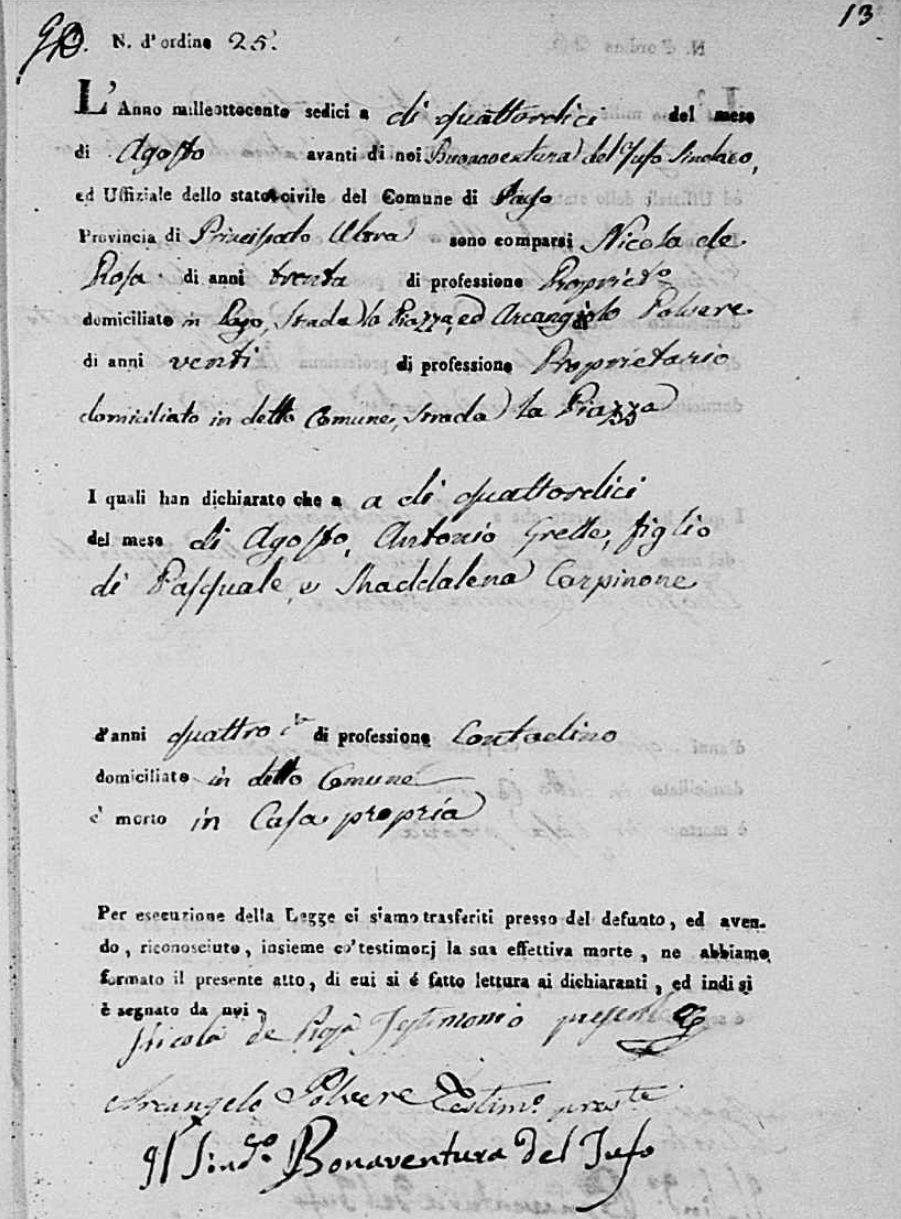 13
N. d'ordine 25.
L'Anno milleottocento sedici a di quattordici del mese
di Agosto avanti di noi Buonaventura del Tufo Sindaco,
ed Uffiziale dello stato civile del Comune di Pago
Provincia di Principato Ultra sono comparsi Nicola de
Rosa di anni trenta di professione Propriet.o
domiciliato in Pago, Strada la Piazza, ed Arcangiolo Polvere
di anni venti di professione Proprietario
domiciliato in detto Comune, Strada la Piazza
I quali han dichiarato che a a di quattordici
del mese di Agosto, Antonio Grette, figlio
di Pasquale, e Maddalena Carpinone
d'anni quattro di professione Contadino
domiciliato in detto Comune
è morto in Casa propria
Per esecuzione della Legge ci siamo trasferiti presso del defunto, ed aven-
do, riconosciuto, insieme co'testimonj la sua effettiva morte, ne abbiamo
formato il presente atto, di cui si é fatto lettura ai dichiaranti, ed indi si
è segnato da noi,
Nicola de Rosa Testimonio presente
Arcangelo Polvere Testim.o pres.te
Il Sind.o Bonaventura Del Tufo